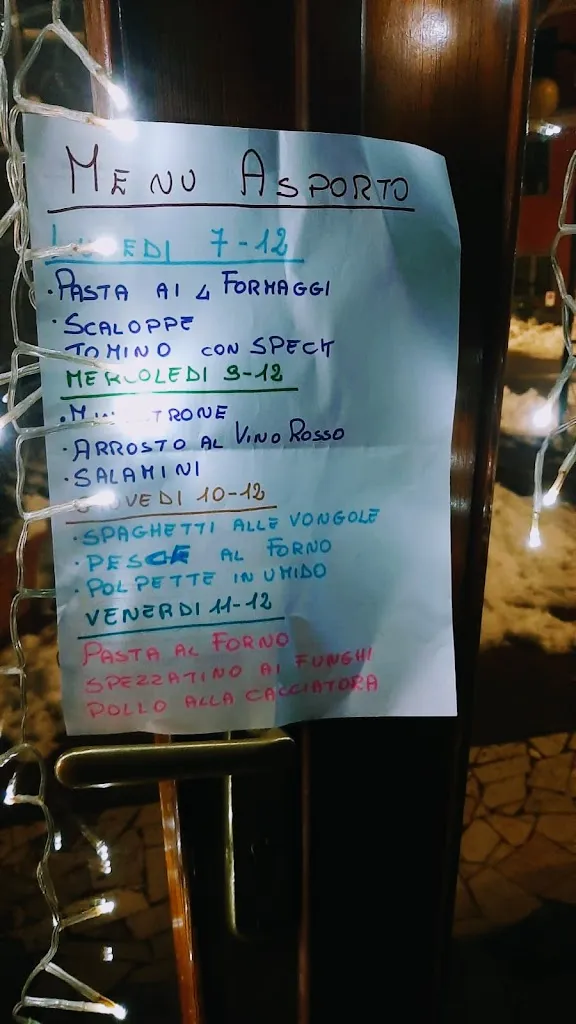 MENU ASPORTO
LUNEDI 7-12
·PASTA AI 4 FORMAGGI
·SCALOPPE
TOMINO CON SPECK
MERCOLEDI 9-12
·MINESTRONE
·ARROSTO AL VINO ROSSO
·SALAMINI
GIOVEDI 10-12
·SPAGHETTI ALLE VONGOLE
·PESCE AL FORNO
·POLPETTE IN UMIDO
VENERDI 11-12
PASTA AL FORNO
SPEZZATINO AI FUNGHI
POLLO ALLA CACCIATORA